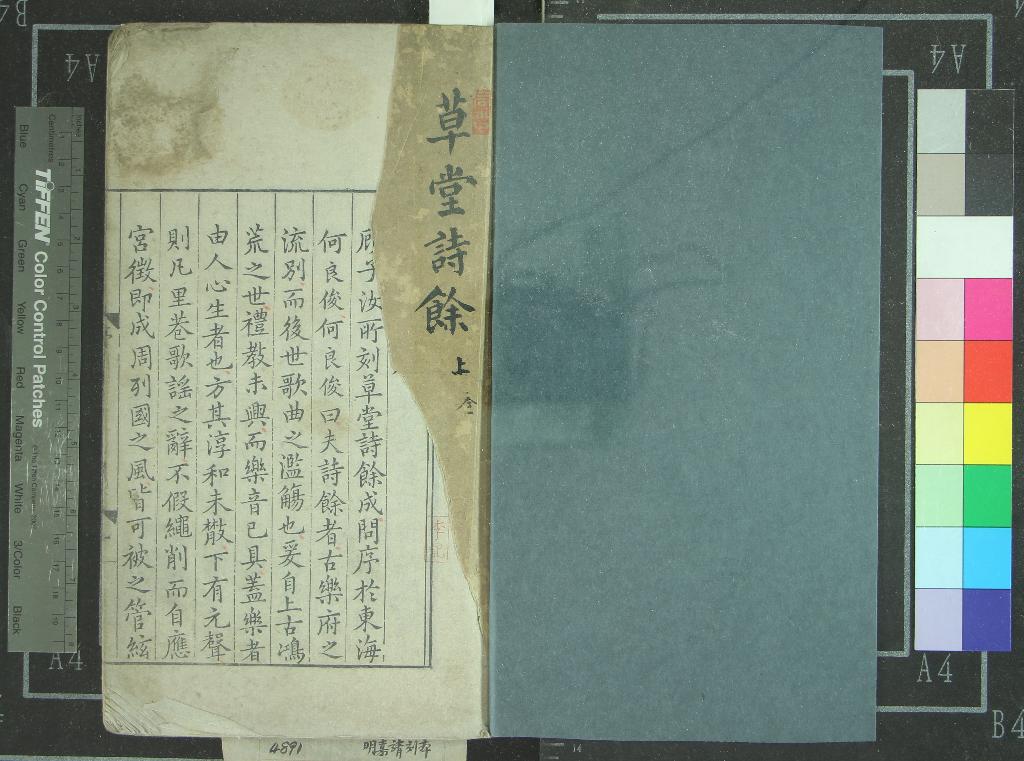 草堂詩餘
上
仝
顧子汝所刻草堂詩餘成問序於東海
何良俊何良俊曰夫詩餘者古樂府之
流別而後世歌曲之濫觴也爰自上古鴻
荒之世禮教未興而樂音已具蓋樂者
由人心生者也方其淳和未散下有元聲
則凡里巷歌謠之辭不假繩削而自應
宮徵即成周列國之風皆可被之管絃
4891
明嘉靖刻本
TIFFEN Color Control Patches
Inches
Centimetres
Blue
Cyan
Green
Yellow
Red
Magenta
White
3/Color
Black
A4
A4
A4
A4
B4
B4
14